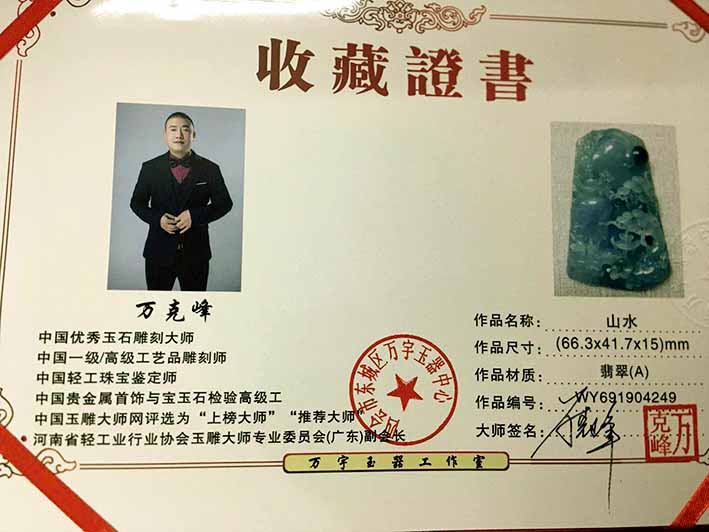 收藏證書
万克峰
中国优秀玉石雕刻大师
中国一级/高级工艺品雕刻师
中国轻工珠宝鉴定师
中国贵金属首饰与宝玉石检验高级工
中国玉雕大师网评选为“上榜大师”“推荐大师”
河南省轻工业行业协会玉雕大师专业委员会(广东)副会长
作品名称: 山水
作品尺寸: (66.3x41.7x15)mm
作品材质: 翡翠(A)
作品编号: WY691904249
大师签名:
万克峰
四会市东城区万宇玉器中心
万宇玉器工作室